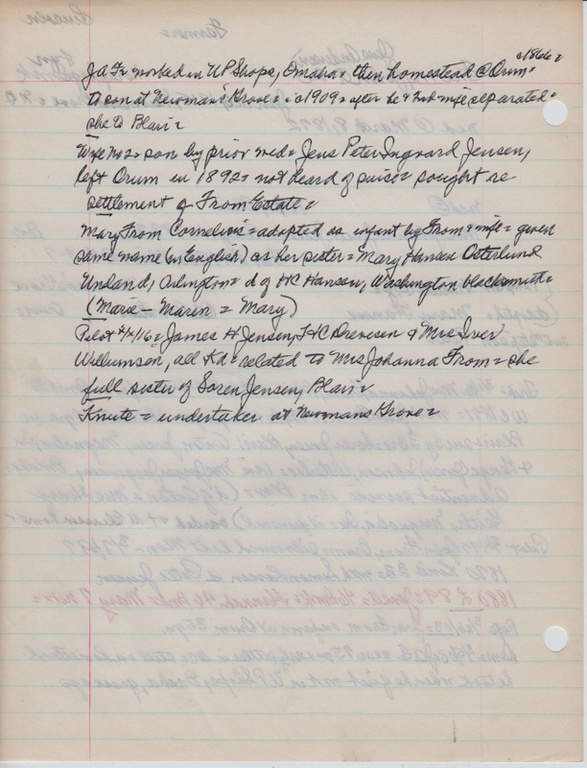 c/866=
JAF= worked in UP Shops, Omaha= then homestead @ Orum=
To son at Newmans' Grove= ic1909= after he & 2nd wife separated=
she to Blair=
Wife No 2= son by prior med= Jens Peter Ingvard Jensen,
left Orum in 1892= not heard of since= sought re
settlement of From Estate=
Mary From Cornelius= adopted as infant by From & wife= given
same name (in English) as her sister= Mary Hansen Osterlund
Unland, Arlington= d of HC Hansen, Washington blacksmith=
(Marie - Maren = Mary)
Pilot 4/4/16= James H Jensen, HC Drevesen & Mrs Iver
Willumsen, all Kd= related to Mrs Johanna From= she
full sister of Soren Jensen, Blair=
Knute= undertaker at Newmans Grove=